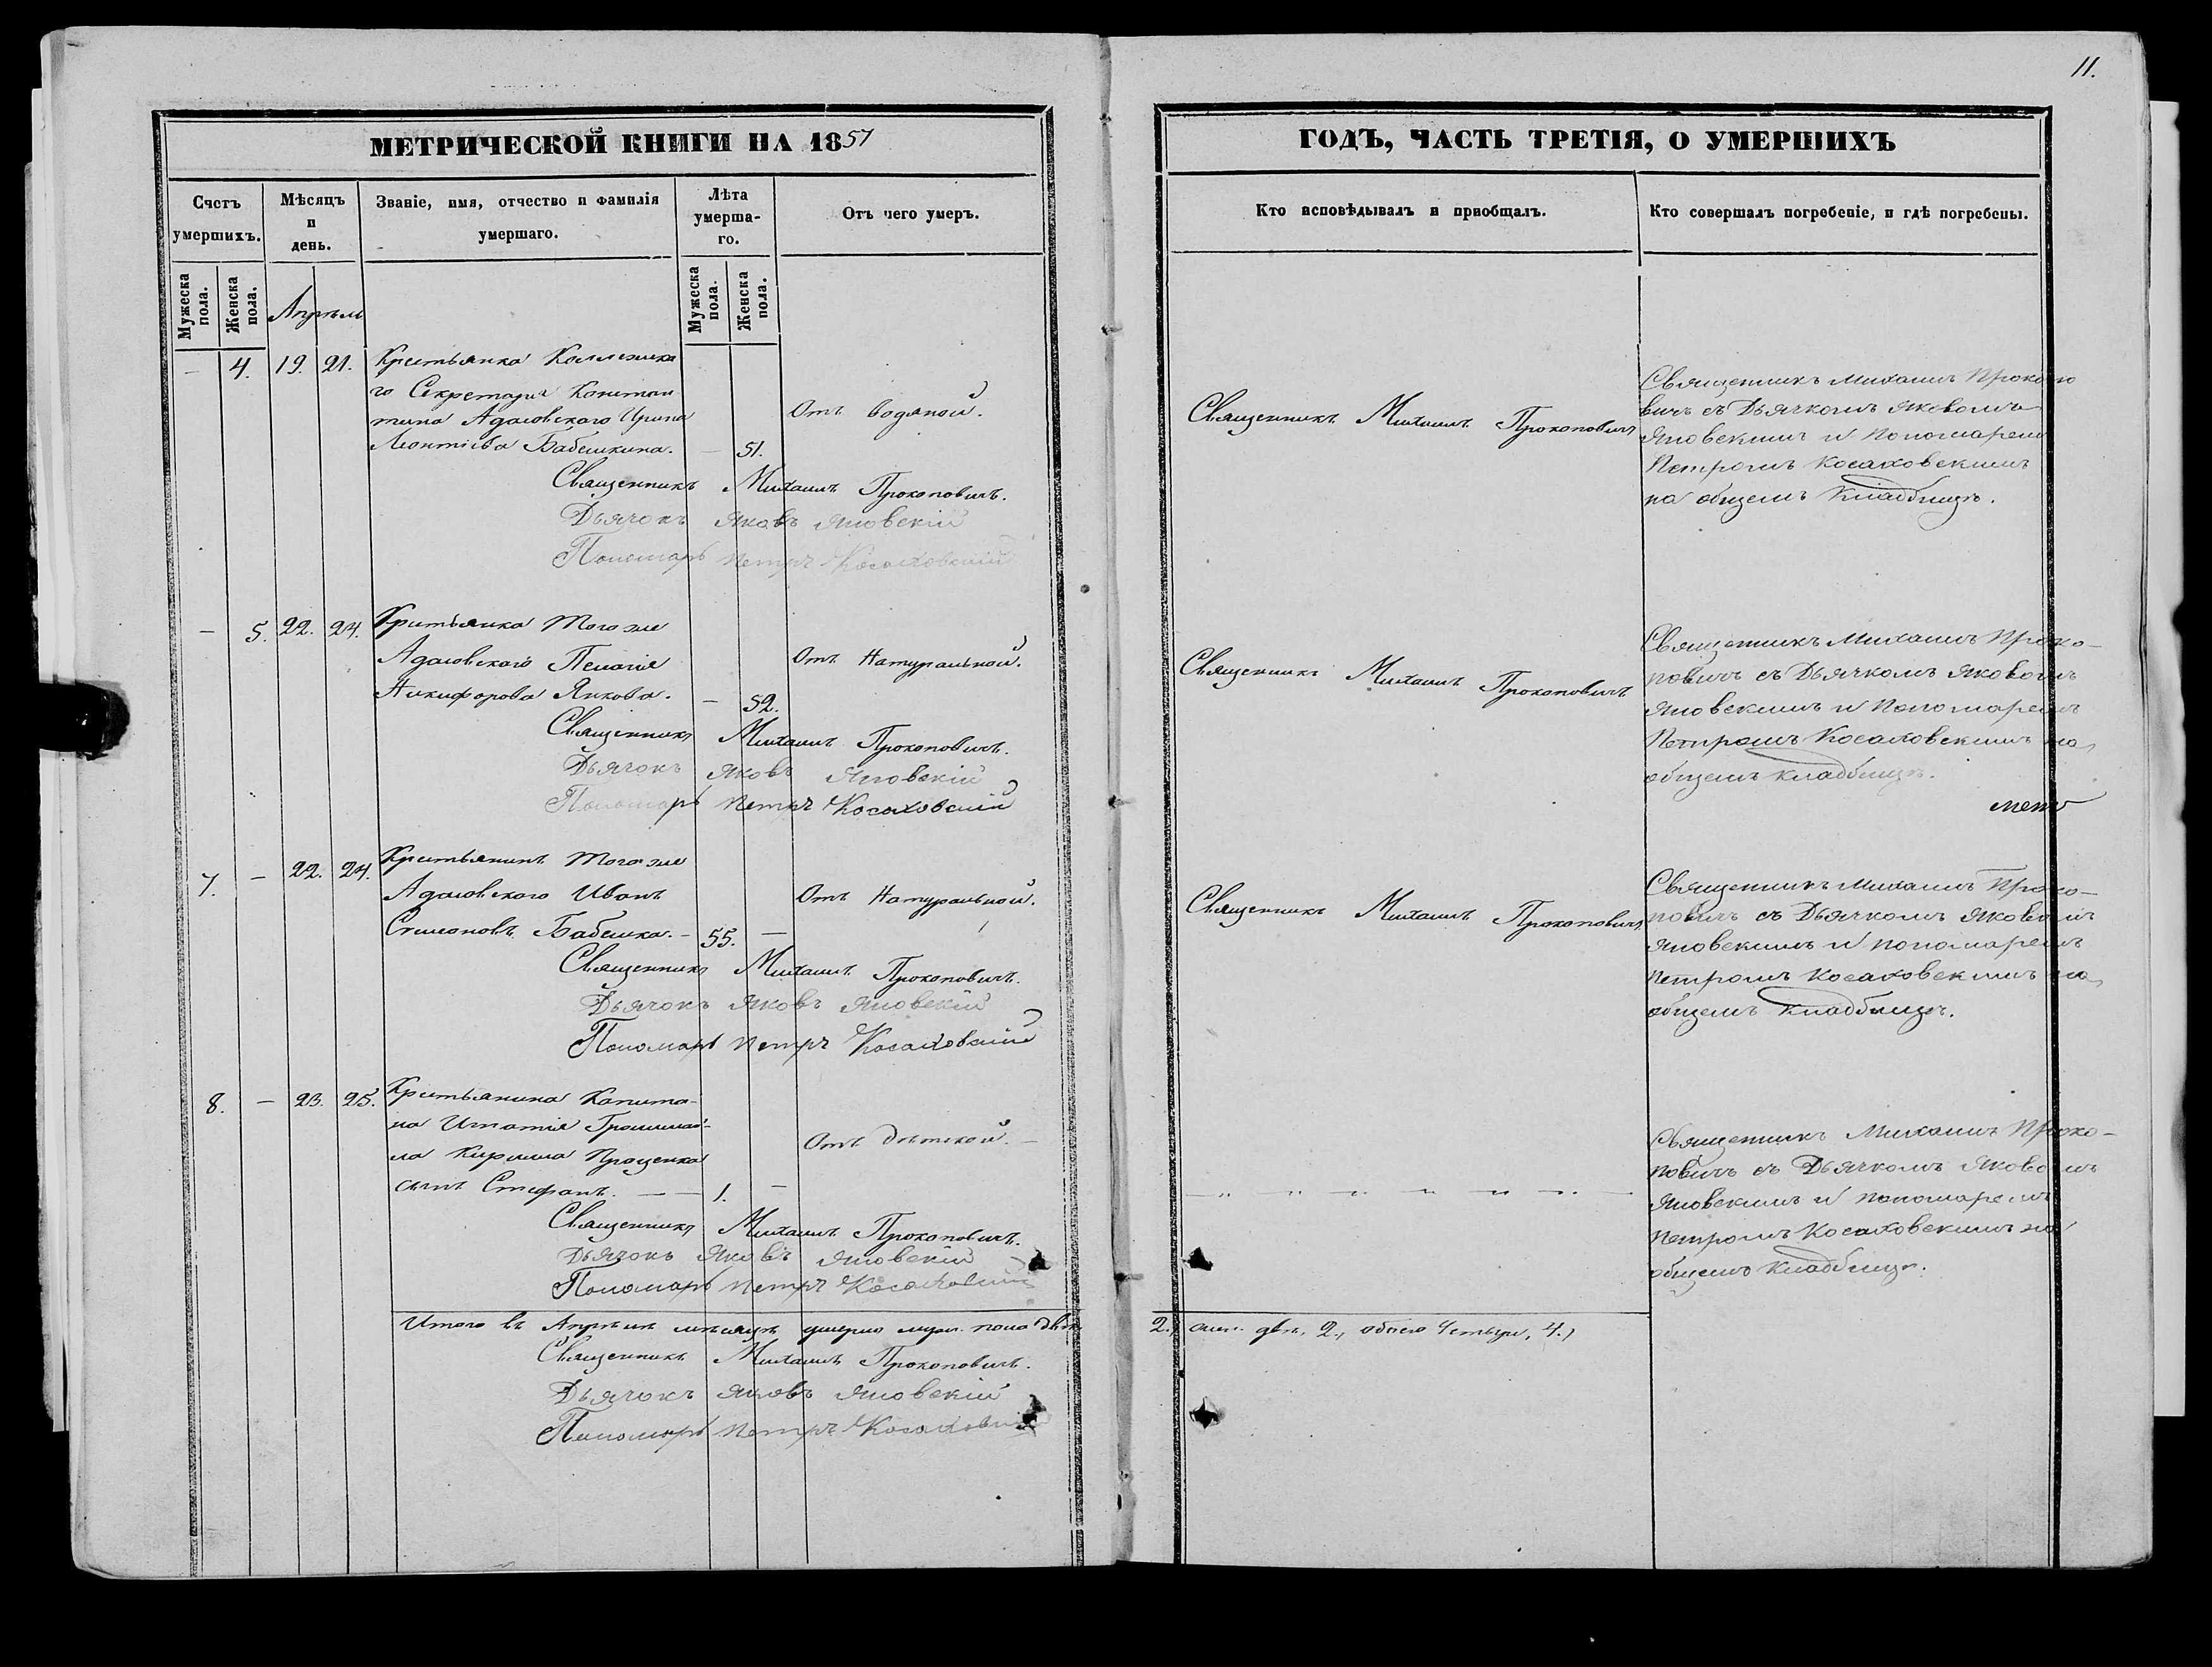 11.
МЕТРИЧЕСКОЙ КНИГИ НА 1857
Счетъ умершихъ.
Мужеска пола.
Женска пола.
Мѣсяцъ и день.
Званіе, имя, отчество и фамилія умершаго.
Лѣта умерша-
го.
Мужеска пола.
Женска пола.
Отъ чего умеръ.
Апрѣль
— 4. 19. 21. Крестьянка Коллежска
го Секретаря Констан
тина Адасовского Ирина
Леонтіева Бабешкина. — 51.
Отъ водяной.
Священникъ Михаилъ Прокоповичъ.
Дьячокъ Яковъ Яновскій
Пономарь Петръ Косаковскій
— 5. 22. 24. Крестьянка Того же
Адасовского Пелагія
Никифорова Янкова. — 52.
Отъ Натуральной.
Священникъ Михаилъ Прокоповичъ.
Дьячокъ Яковъ Яновскій
Пономарь Петръ Косаковскій
7. — 22. 24. Крестьянинъ Того же
Адасовского Иванъ
Симеоновъ Бабешка. — 55. —
Отъ Натуральной.
Священникъ Михаилъ Прокоповичъ.
Дьячокъ Яковъ Яновскій
Пономарь Петръ Косаковскій
8. — 23. 25. Крестьянина Капита-
на Игнатія
Кирилла Проценка
сынъ Стефанъ. — — 1. —
Отъ дѣтской. —
Священникъ Михаилъ Прокоповичъ.
Дьячокъ Яковъ Яновскій
Пономарь Петръ Косаковскій
Итого въ Апрѣлѣ мѣсяцѣ умерло муж. пола два
Священникъ Михаилъ Прокоповичъ.
Дьячокъ Яковъ Яновскій
Пономарь Петръ Косаковскій
ГОДЪ, ЧАСТЬ ТРЕТІЯ, О УМЕРШИХЪ
Кто исповѣдывалъ и пріобщалъ.
Кто совершалъ погребеніе, и гдѣ погребены.
Священникъ Михаилъ Прокоповичъ
Священникъ Михаилъ Прокопо
вичъ съ Дьячкомъ Яковомъ
Яновскимъ и Пономаремъ
Петромъ Косаковскимъ
на общемъ Кладбищѣ.
Священникъ Михаилъ Прокоповичъ
Священникъ Михаилъ Проко-
повичъ съ Дьячкомъ Яковомъ
Яновскимъ и Пономаремъ
Петромъ Косаковскимъ на
общемъ кладбищѣ.
Священникъ Михаилъ Прокоповичъ
Священникъ Михаилъ Проко-
повичъ съ Дьячкомъ Яковомъ
Яновскимъ и пономаремъ
Петромъ Косаковскимъ на
общемъ Кладбищѣ.
Священникъ Михаилъ Проко-
повичъ съ Дьячкомъ Яковомъ
Яновскимъ и пономаремъ
Петромъ Косаковскимъ на
общемъ Кладбищѣ.
2., жен. двѣ, 2., обоего Четыри, 4.,